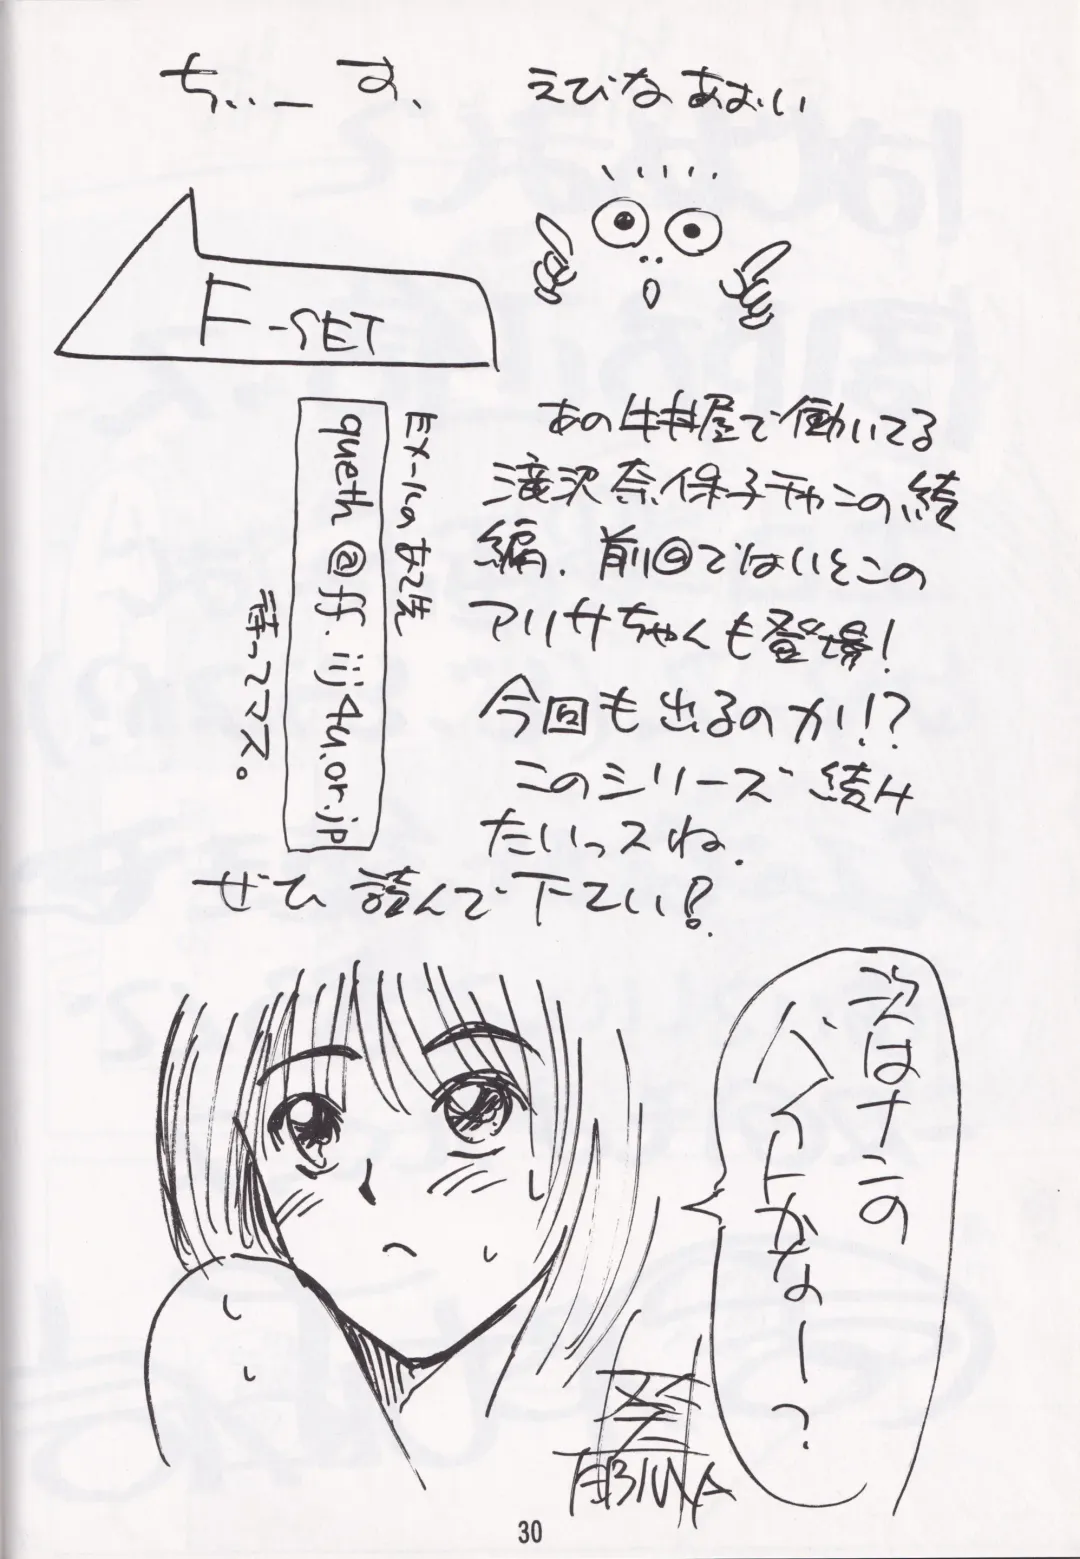 ちぃーす、 えびなあおい
F-SET
あの牛丼屋で働いてる
滝沢奈保子チャンの続
編、前回ではいとこの
アリサちゃんも登場!
今回も出るのか!?
このシリーズ続け
たいっスね.
ぜひ読んで下さい!
Eメールのあて先
queth@ff.iij4u.or.jp
待ってマス。
次はナニの
バイトかなー?
葵
EBINA
30